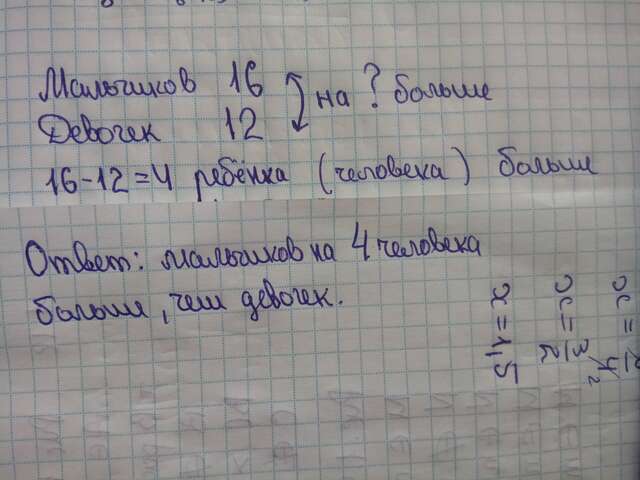 Мальчиков 16
на ? больше
Девочек 12
16-12=4 ребёнка (человека) больше
Ответ: мальчиков на 4 человека
больше, чем девочек.
x = 1,5
x = 3/2